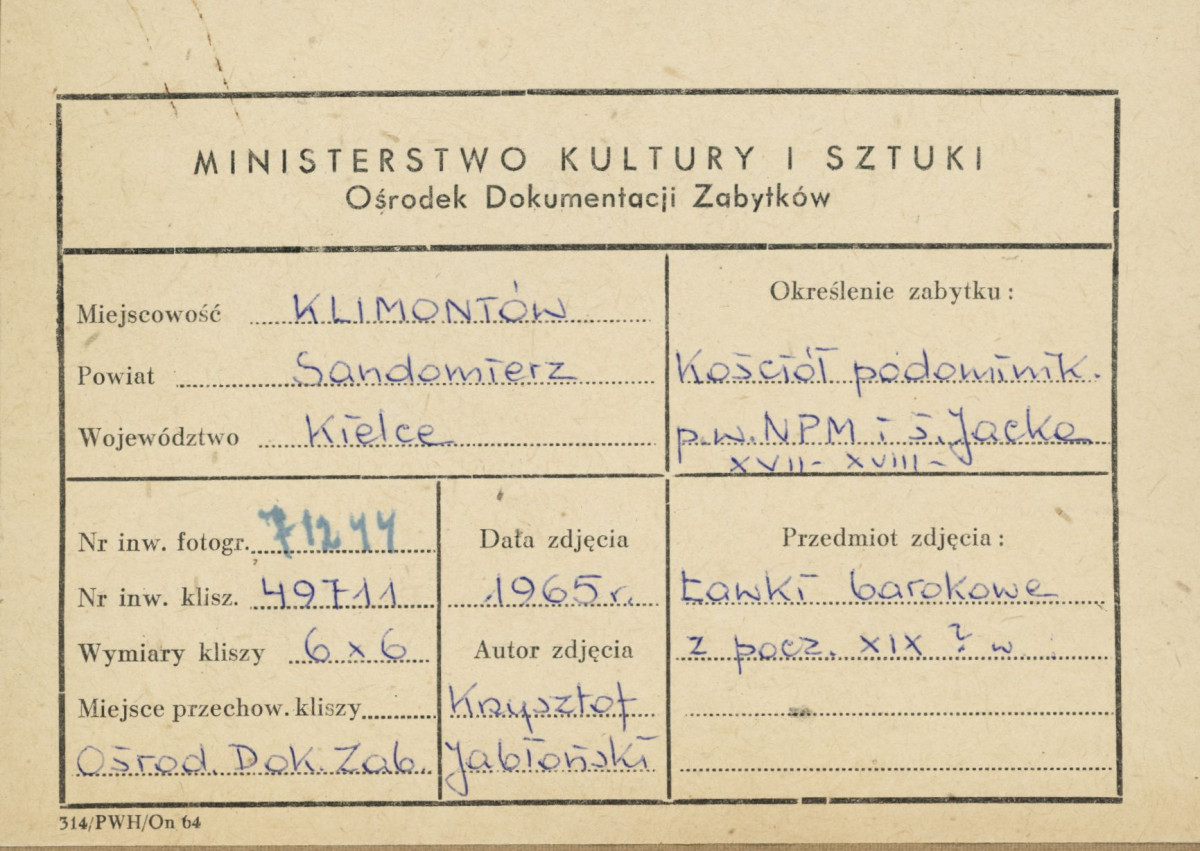 MINISTERSTWO KULTURY I SZTUKI
Ośrodek Dokumentacji Zabytków
Miejscowość KLIMONTÓW
Powiat Sandomierz
Województwo Kielce
Określenie zabytku:
Kościół podominik.
p.w. NPM i ś. Jacka
XVII- XVIII-
Nr inw. fotogr. 71244
Nr inw. klisz. 49711
Wymiary kliszy 6 x 6
Miejsce przechow. kliszy
Ośrod. Dok. Zab.
Data zdjęcia
1965 r.
Autor zdjęcia
Krzysztof
Jabłoński
Przedmiot zdjęcia:
Ławki barokowe
z pocz. XIX ? w
314/PWH/On 64